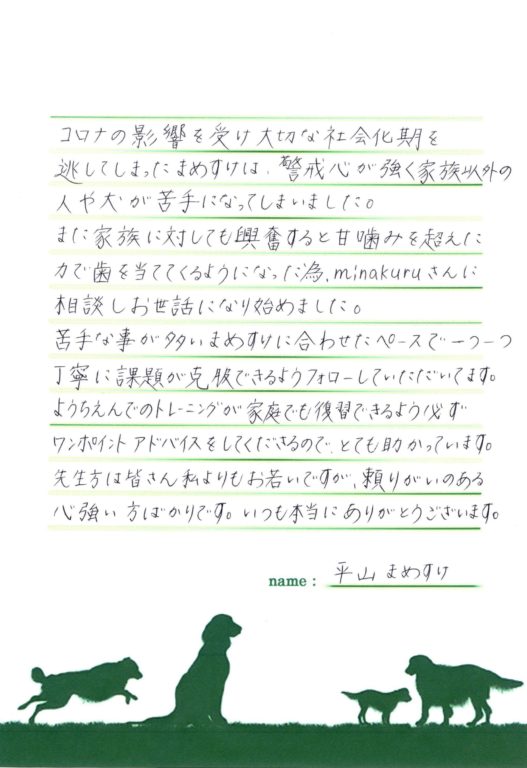 コロナの影響を受け大切な社会化期を
逃してしまったまめすけは、警戒心が強く家族以外の
人や犬が苦手になってしまいました。
また家族に対しても興奮すると甘噛みを超えた
力で歯を当ててくるようになった為、minakuruさんに
相談しお世話になり始めました。
苦手な事が多いまめすけに合わせたペースで一つ一つ
丁寧に課題が克服できるようフォローしていただいてます。
ようちえんでのトレーニングが家庭でも復習できるよう必ず
ワンポイントアドバイスをしてくださるので、とても助かっています。
先生方は皆さん私よりもお若いですが、頼りがいのある
心強い方ばかりです。いつも本当にありがとうございます。
name : 平山まめすけ